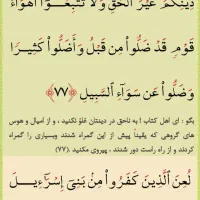 دِينِكُمْ غَيْرَ ٱلْحَقِّ وَلَا تَتَّبِعُوٓا۟ أَهْوَآءَ
قَوْمٍ قَدْ ضَلُّوا۟ مِن قَبْلُ وَأَضَلُّوا۟ كَثِيرًا
وَضَلُّوا۟ عَن سَوَآءِ ٱلسَّبِيلِ ﴿٧٧﴾
بگو : ای اهل کتاب ! به ناحق در دینتان غلوّ نکنید ، و از امیال و هوس
های گروهی که یقیناً پیش از این گمراه شدند وبسیاری را گمراه
کردند و از راه راست دور شدند ، پیروی مکنید .(٧٧)
لُعِنَ ٱلَّذِينَ كَفَرُوا۟ مِنۢ بَنِىٓ إِسْرَٰٓءِيلَ